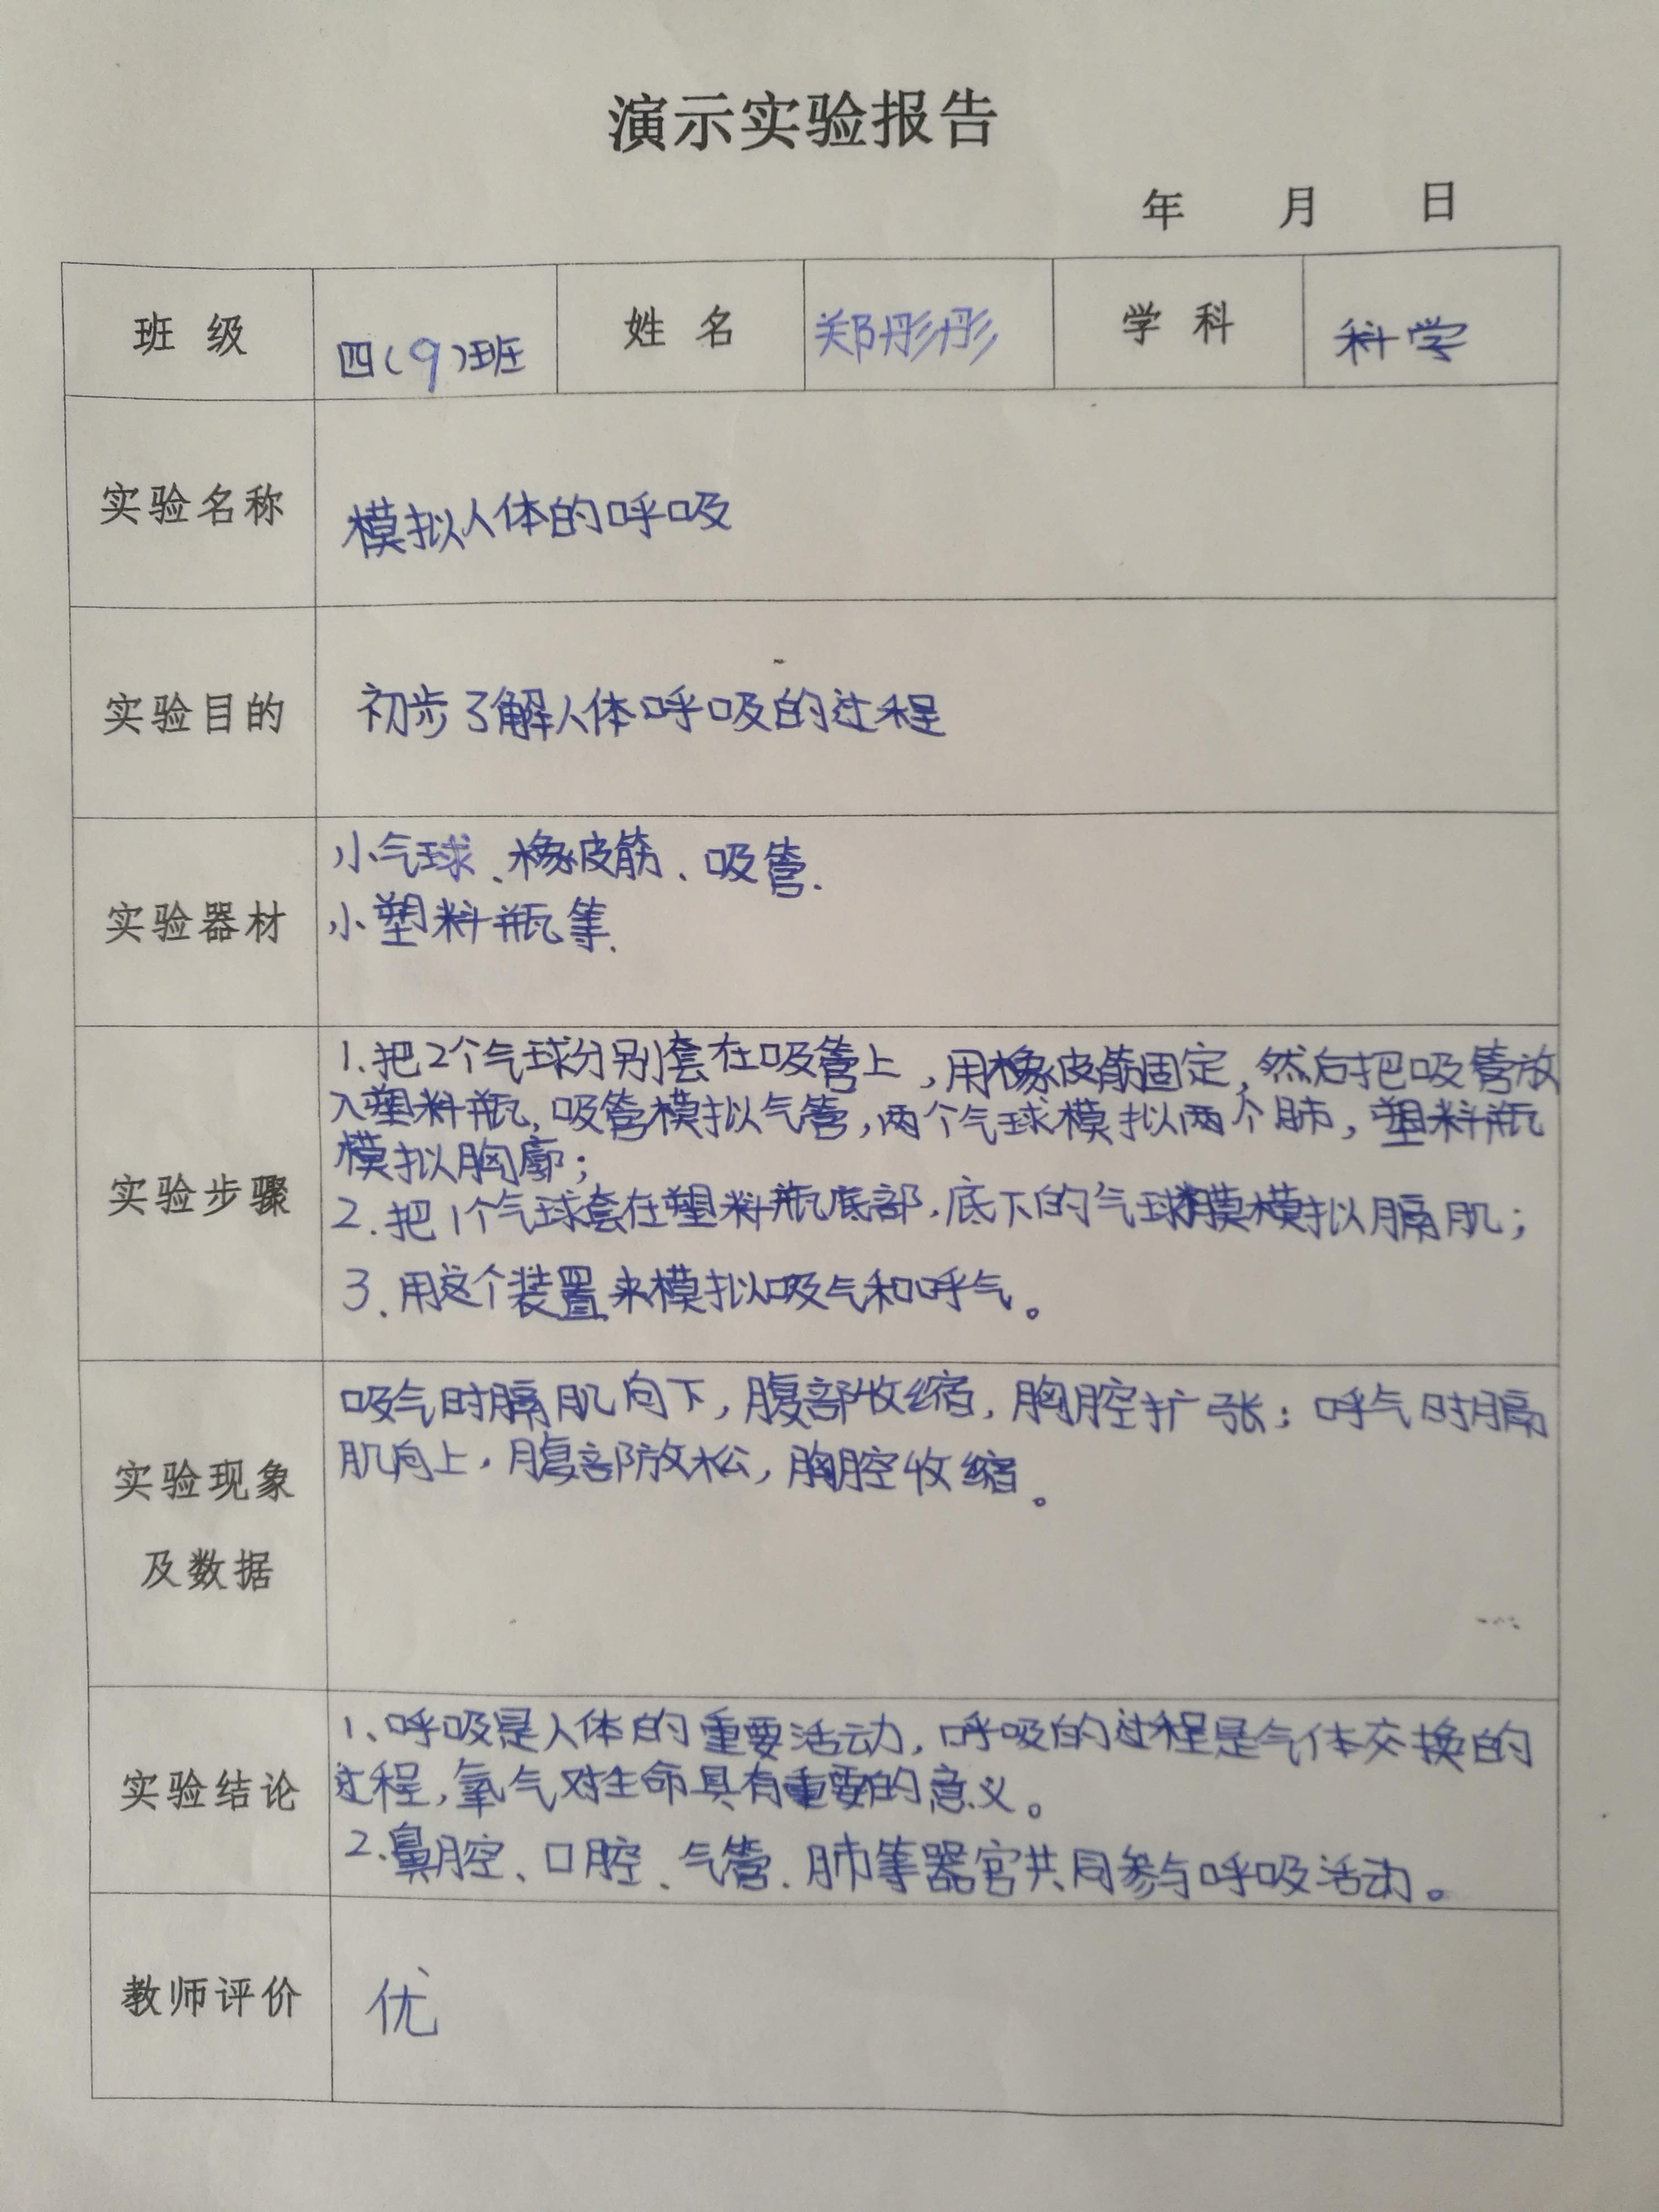 演示实验报告
年 月 日
班 级 四(9)班 姓 名 郑彤彤 学 科 科学
实验名称 模拟人体的呼吸
实验目的 初步了解人体呼吸的过程
小气球、橡皮筋、吸管.
实验器材 小塑料瓶等.
1.把2个气球分别套在吸管上,用橡皮筋固定,然后把吸管放
入塑料瓶,吸管模拟气管,两个气球模拟两个肺,塑料瓶
模拟胸廓;
实验步骤
2.把1个气球套在塑料瓶底部,底下的气球膜模拟膈肌;
3.用这个装置来模拟吸气和呼气。
吸气时膈肌向下,腹部收缩,胸腔扩张;呼气时膈
肌向上,腹部放松,胸腔收缩。
实验现象
及数据
1、呼吸是人体的重要活动,呼吸的过程是气体交换的
实验结论 过程,氧气对生命具有重要的意义。
2.鼻腔、口腔、气管.肺等器官共同参与呼吸活动。
教师评价 优